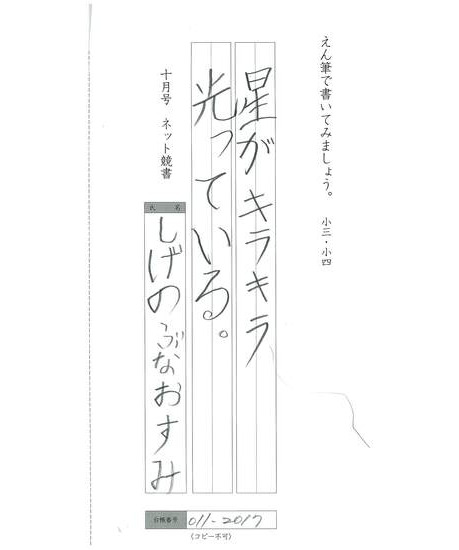 えん筆で書いてみましょう。 小三・小四
星がキラキラ
光っている。
十月号 ネット競書
氏名
しげのぶなおすみ
台帳番号 011-2017
(コピー不可)